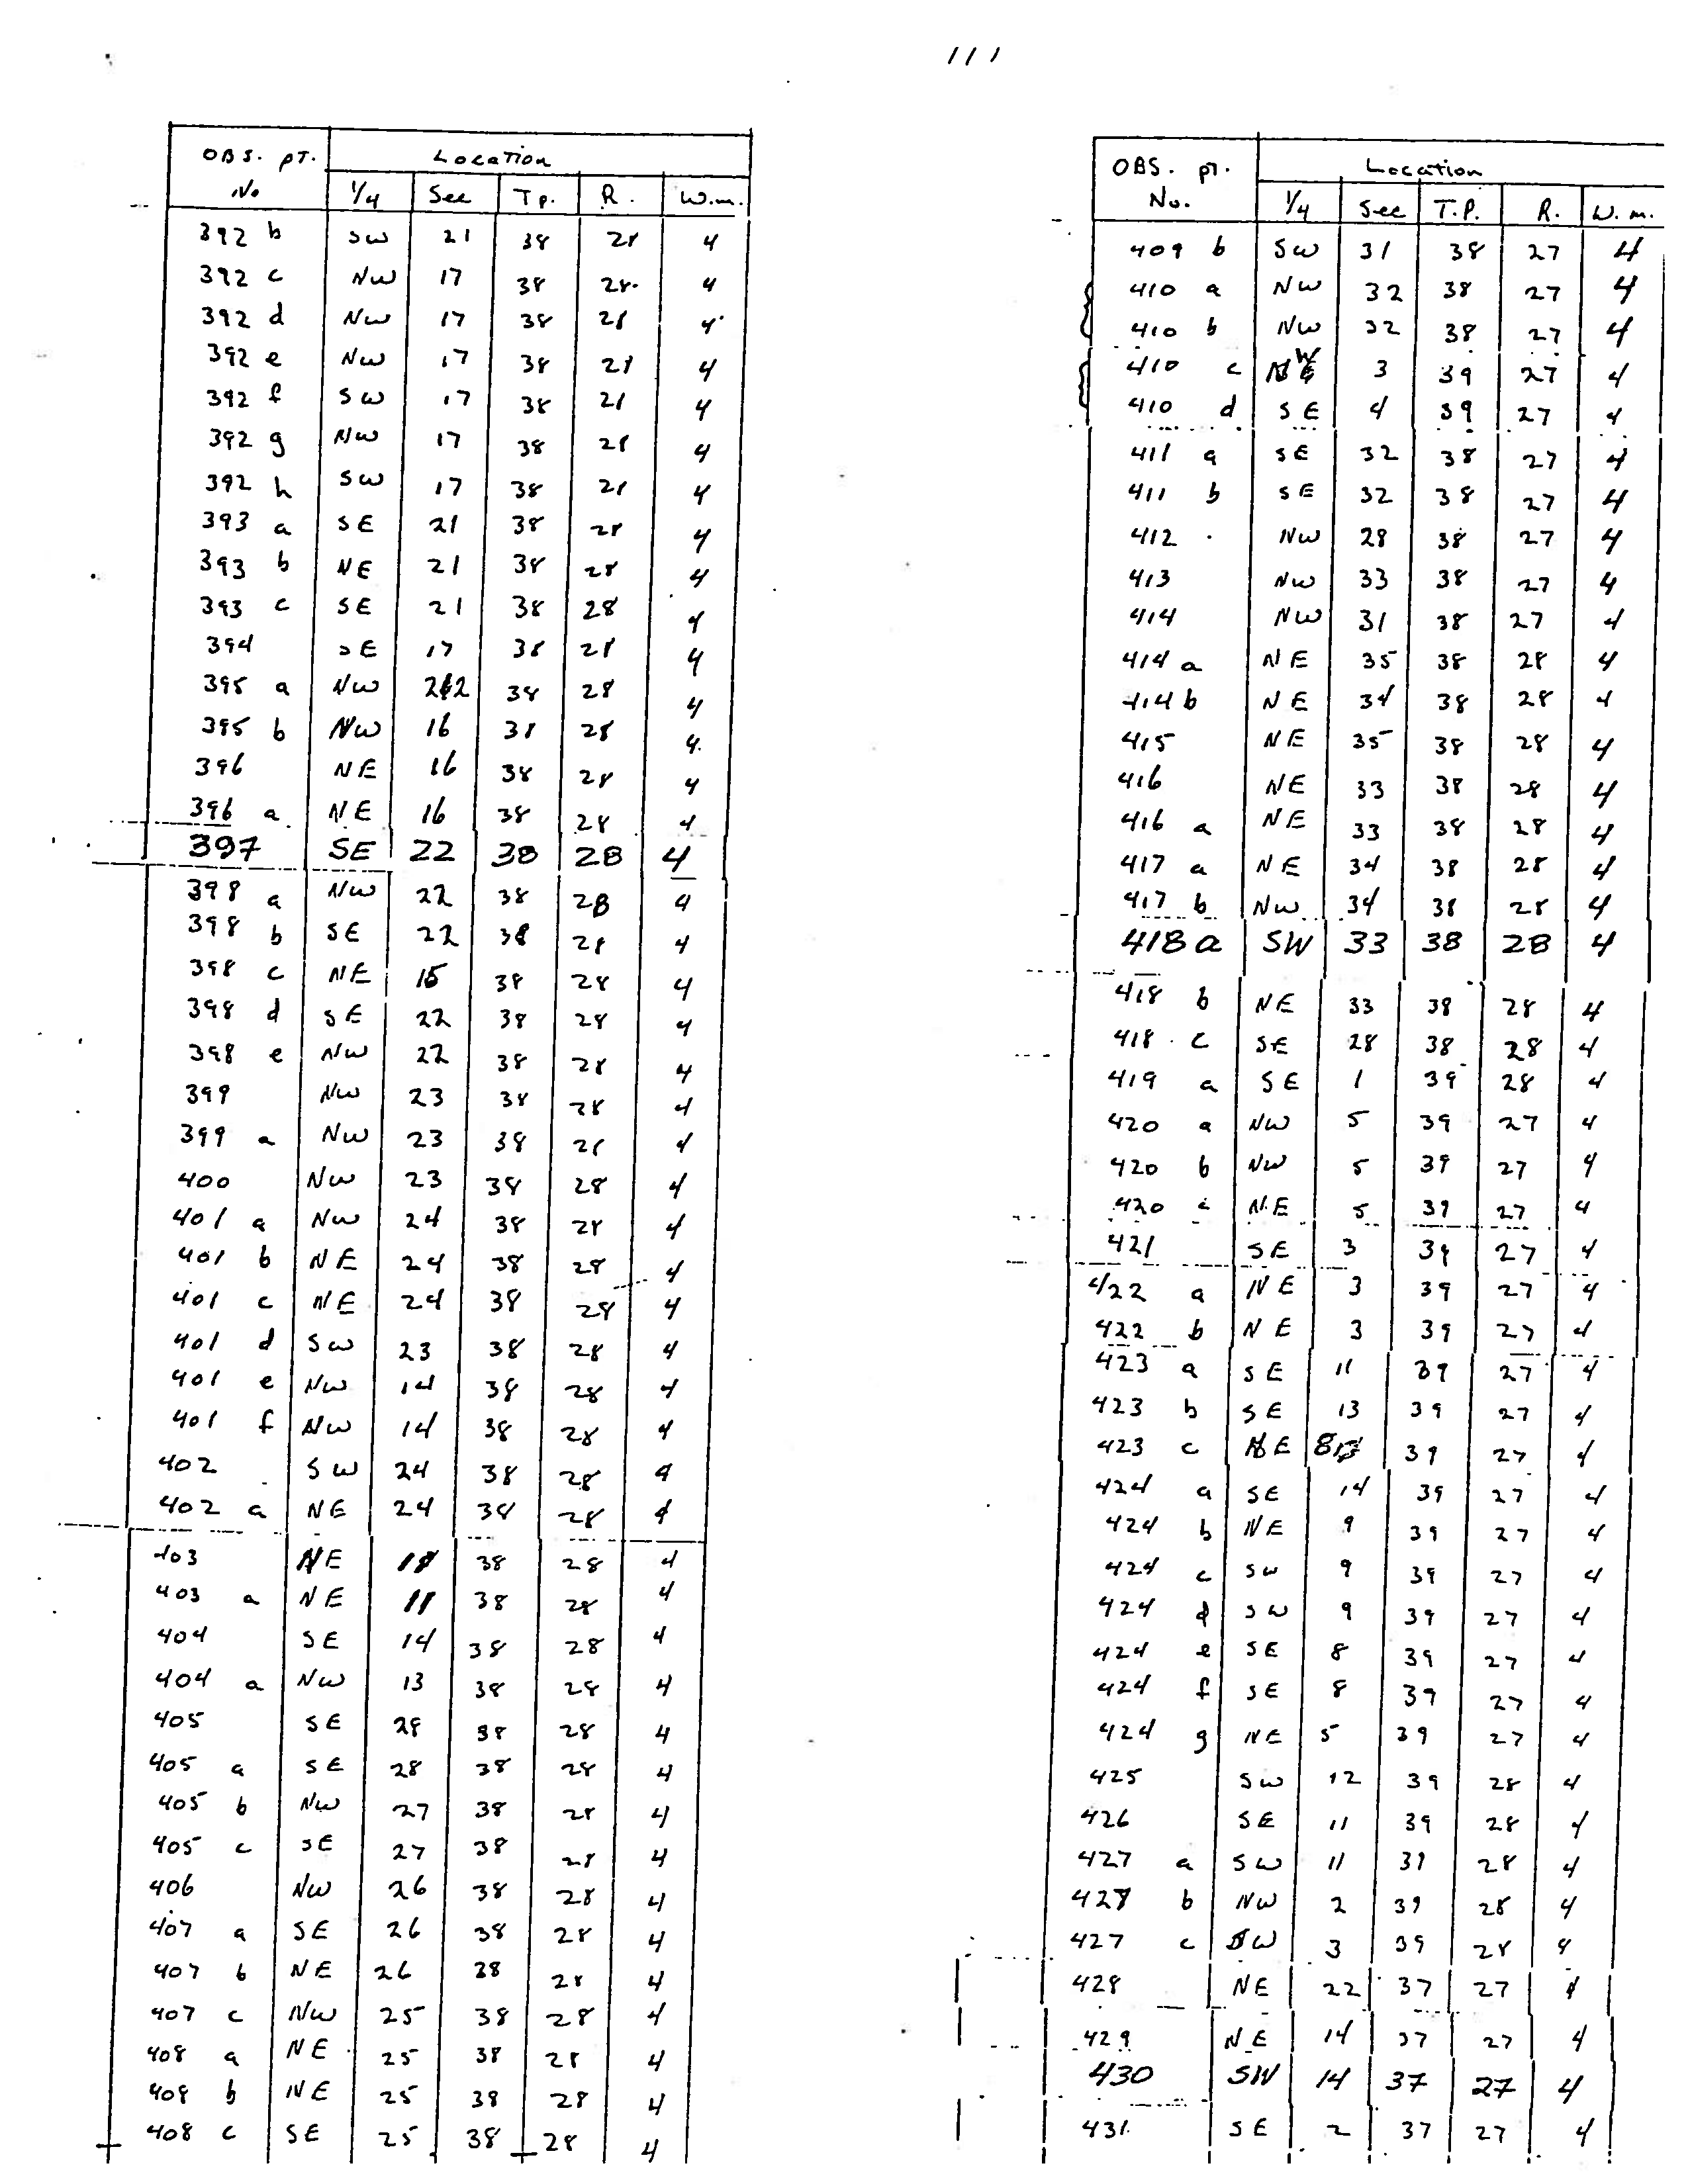 111
OBS. pt. Location
No 1/4 See Tp. R. W.m.
392 b SW 21 38 28 4
392 c NW 17 38 28 4
392 d NW 17 38 28 4
392 e NW 17 38 28 4
392 f SW 17 38 28 4
392 g NW 17 38 28 4
392 h SW 17 38 28 4
393 a SE 21 38 28 4
393 b NE 21 38 28 4
393 c SE 21 38 28 4
394 SE 17 38 28 4
395 a NW 38 28 4
395 b NW 16 38 28 4
396 NE 16 38 28 4
396 a NE 16 38 28 4
397 SE 22 38 28 4
398 a NW 22 38 28 4
398 b SE 22 38 28 4
398 c NE 15 38 28 4
398 d SE 22 38 28 4
398 e NW 22 38 28 4
399 NW 23 38 28 4
399 a NW 23 38 28 4
400 NW 23 38 28 4
401 a NW 24 38 28 4
401 b NE 24 38 28 4
401 c NE 24 38 28 4
401 d SW 23 38 28 4
401 e NW 14 38 28 4
401 f NW 14 38 28 4
402 SW 24 38 28 4
402 a NE 24 38 28 4
403 NE 38 28 4
403 a NE 11 38 28 4
404 SE 14 38 28 4
404 a NW 13 38 28 4
405 SE 28 38 28 4
405 a SE 28 38 28 4
405 b NW 27 38 28 4
405 c SE 27 38 28 4
406 NW 26 38 28 4
407 a SE 26 38 28 4
407 b NE 26 38 28 4
407 c NW 25 38 28 4
408 a NE 25 38 28 4
408 b NE 25 38 28 4
408 c SE 25 38 28 4
OBS. pt. Location
No. 1/4 See T.P. R. W.m.
409 b SW 31 38 27 4
410 a NW 32 38 27 4
410 b NW 32 38 27 4
410 c NW 3 39 27 4
410 d SE 4 39 27 4
411 a SE 32 38 27 4
411 b SE 32 38 27 4
412 NW 28 38 27 4
413 NW 33 38 27 4
414 NW 31 38 27 4
414 a NE 35 38 28 4
414 b NE 34 38 28 4
415 NE 35 38 28 4
416 NE 33 38 28 4
416 a NE 33 38 28 4
417 a NE 34 38 28 4
417 b NW 34 38 28 4
418 a SW 33 38 28 4
418 b NE 33 38 28 4
418 c SE 28 38 28 4
419 a SE 1 39 28 4
420 a NW 5 39 27 4
420 b NW 5 39 27 4
420 c NE 5 39 27 4
421 SE 3 39 27 4
422 a NE 3 39 27 4
422 b NE 3 39 27 4
423 a SE 11 39 27 4
423 b SE 13 39 27 4
423 c NE 39 27 4
424 a SE 14 39 27 4
424 b NE 9 39 27 4
424 c SW 9 39 27 4
424 d SW 9 39 27 4
424 e SE 8 39 27 4
424 f SE 8 39 27 4
424 g NE 5 39 27 4
425 SW 12 39 28 4
426 SE 11 39 28 4
427 a SW 11 39 28 4
427 b NW 2 39 28 4
427 c SW 3 39 28 4
428 NE 22 37 27 4
429 NE 14 37 27 4
430 SW 14 37 27 4
431 SE 2 37 27 4